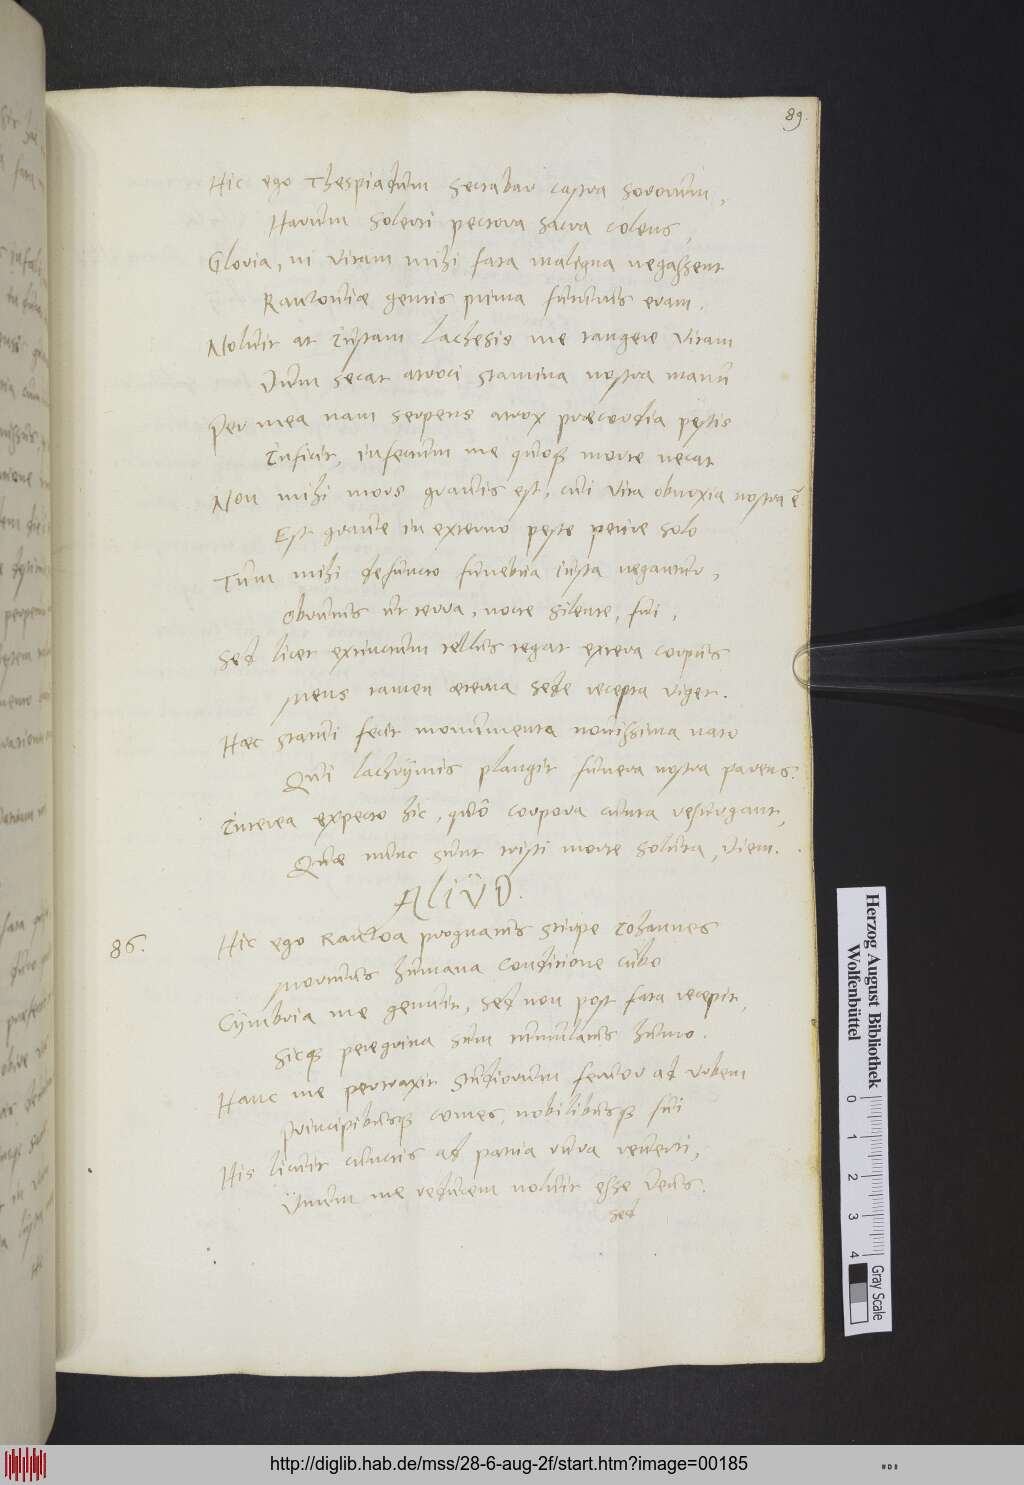 89.
Hic ego Thespiadum sectabar castra sororum,
Harum solerti pectora sacra colens,
Gloria, ni vitam mihi fata maligna negassent
Rantoviæ gentis prima futurus eram.
Noluit at iustam Lachesis me tangere vitam
Dum secat atroci stamina nostra manu
Per mea nam serpens atrox præcordia pestis
Inficit, infectum me quoqꝫ morte necat
Non mihi mors gravis est, cui vita obnoxia nostra ē
Est grave in externo peste perire solo
Tum mihi defuncto funebria iusta negantur,
Obrutus ut terra, nocte silente, fui,
Sed licet extinctum tellus tegat extera corpus
Mens tamen æterna sede recepta viget.
Hæc statui fecit monumenta novissima nato
Qui lachrymis plangit funera nostra parens.
Interea expecto hic, quo corpora cuncta resurgant,
Quæ nunc sunt tristi morte soluta, Diem.
ALIUD.
86.
Hic ego Rantzoa prognatus stirpe Iohannes
Mortuus humana conditione cubo
Cymbria me genuit, sed non post fata recepit,
Sicqꝫ peregrina sum tumulatus humo.
Hanc me pertraxit studiorum fervor ad urbem
Principibusqꝫ comes, nobilibusqꝫ fui
His licuit cunctis ad patria rura reverti,
Unum me reducem noluit esse Deus.
Sed
Herzog August Bibliothek
Wolfenbüttel
0 1 2 3 4
Gray Scale
http://diglib.hab.de/mss/28-6-aug-2f/start.htm?image=00185